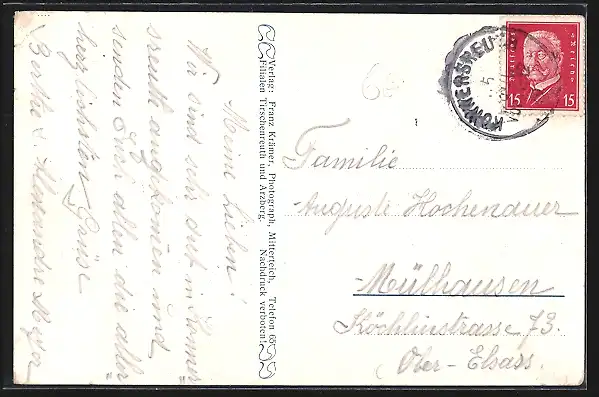 Meine Lieben!
Wir sind sehr gut in Konners=
reuth angekommen und
senden Euch allen die aller=
herzlichsten Grüse
Bertha &
Verlag: Franz Krämer, Photograph, Mitterteich, Telefon 65
Filialen Tirschenreuth und Arzberg. Nachdruck verboten!
60
KONNERSREUTH
Deutsches Reich
15 15
Familie
Auguste Hochenauer
Mülhausen
Köchlinstrasse 73.
Ober-Elsass.